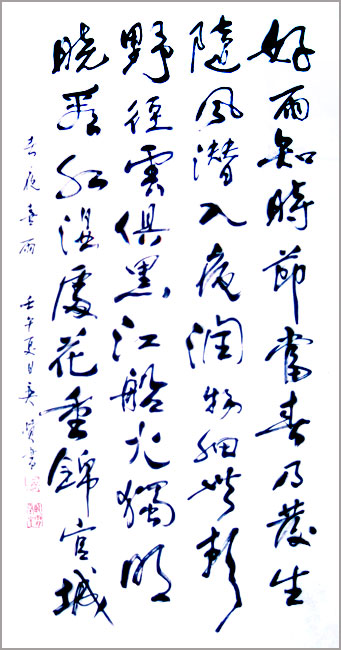 好雨知時節當春乃發生
隨風潛入夜润物細無聲
野徑雲俱黑江船火獨明
曉看紅濕處花重錦官城
春夜喜雨 壬午夏日